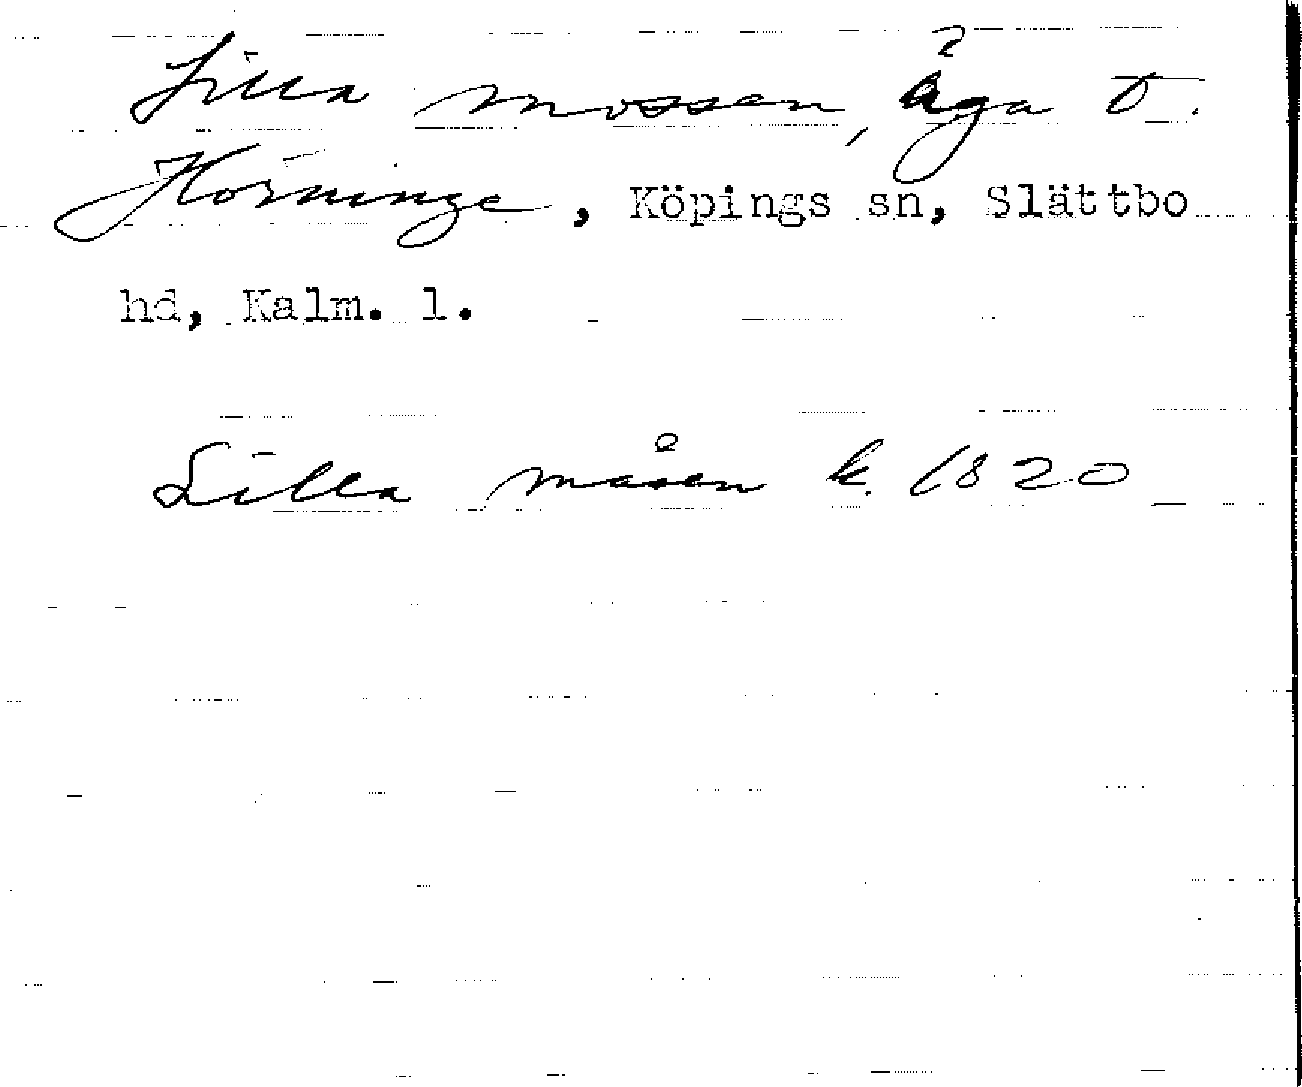 Lilla mossen, äga t.
Hörninge, Köpings sn, Slättbo
hd, Kalm. l.
Lilla måsen k. 1820